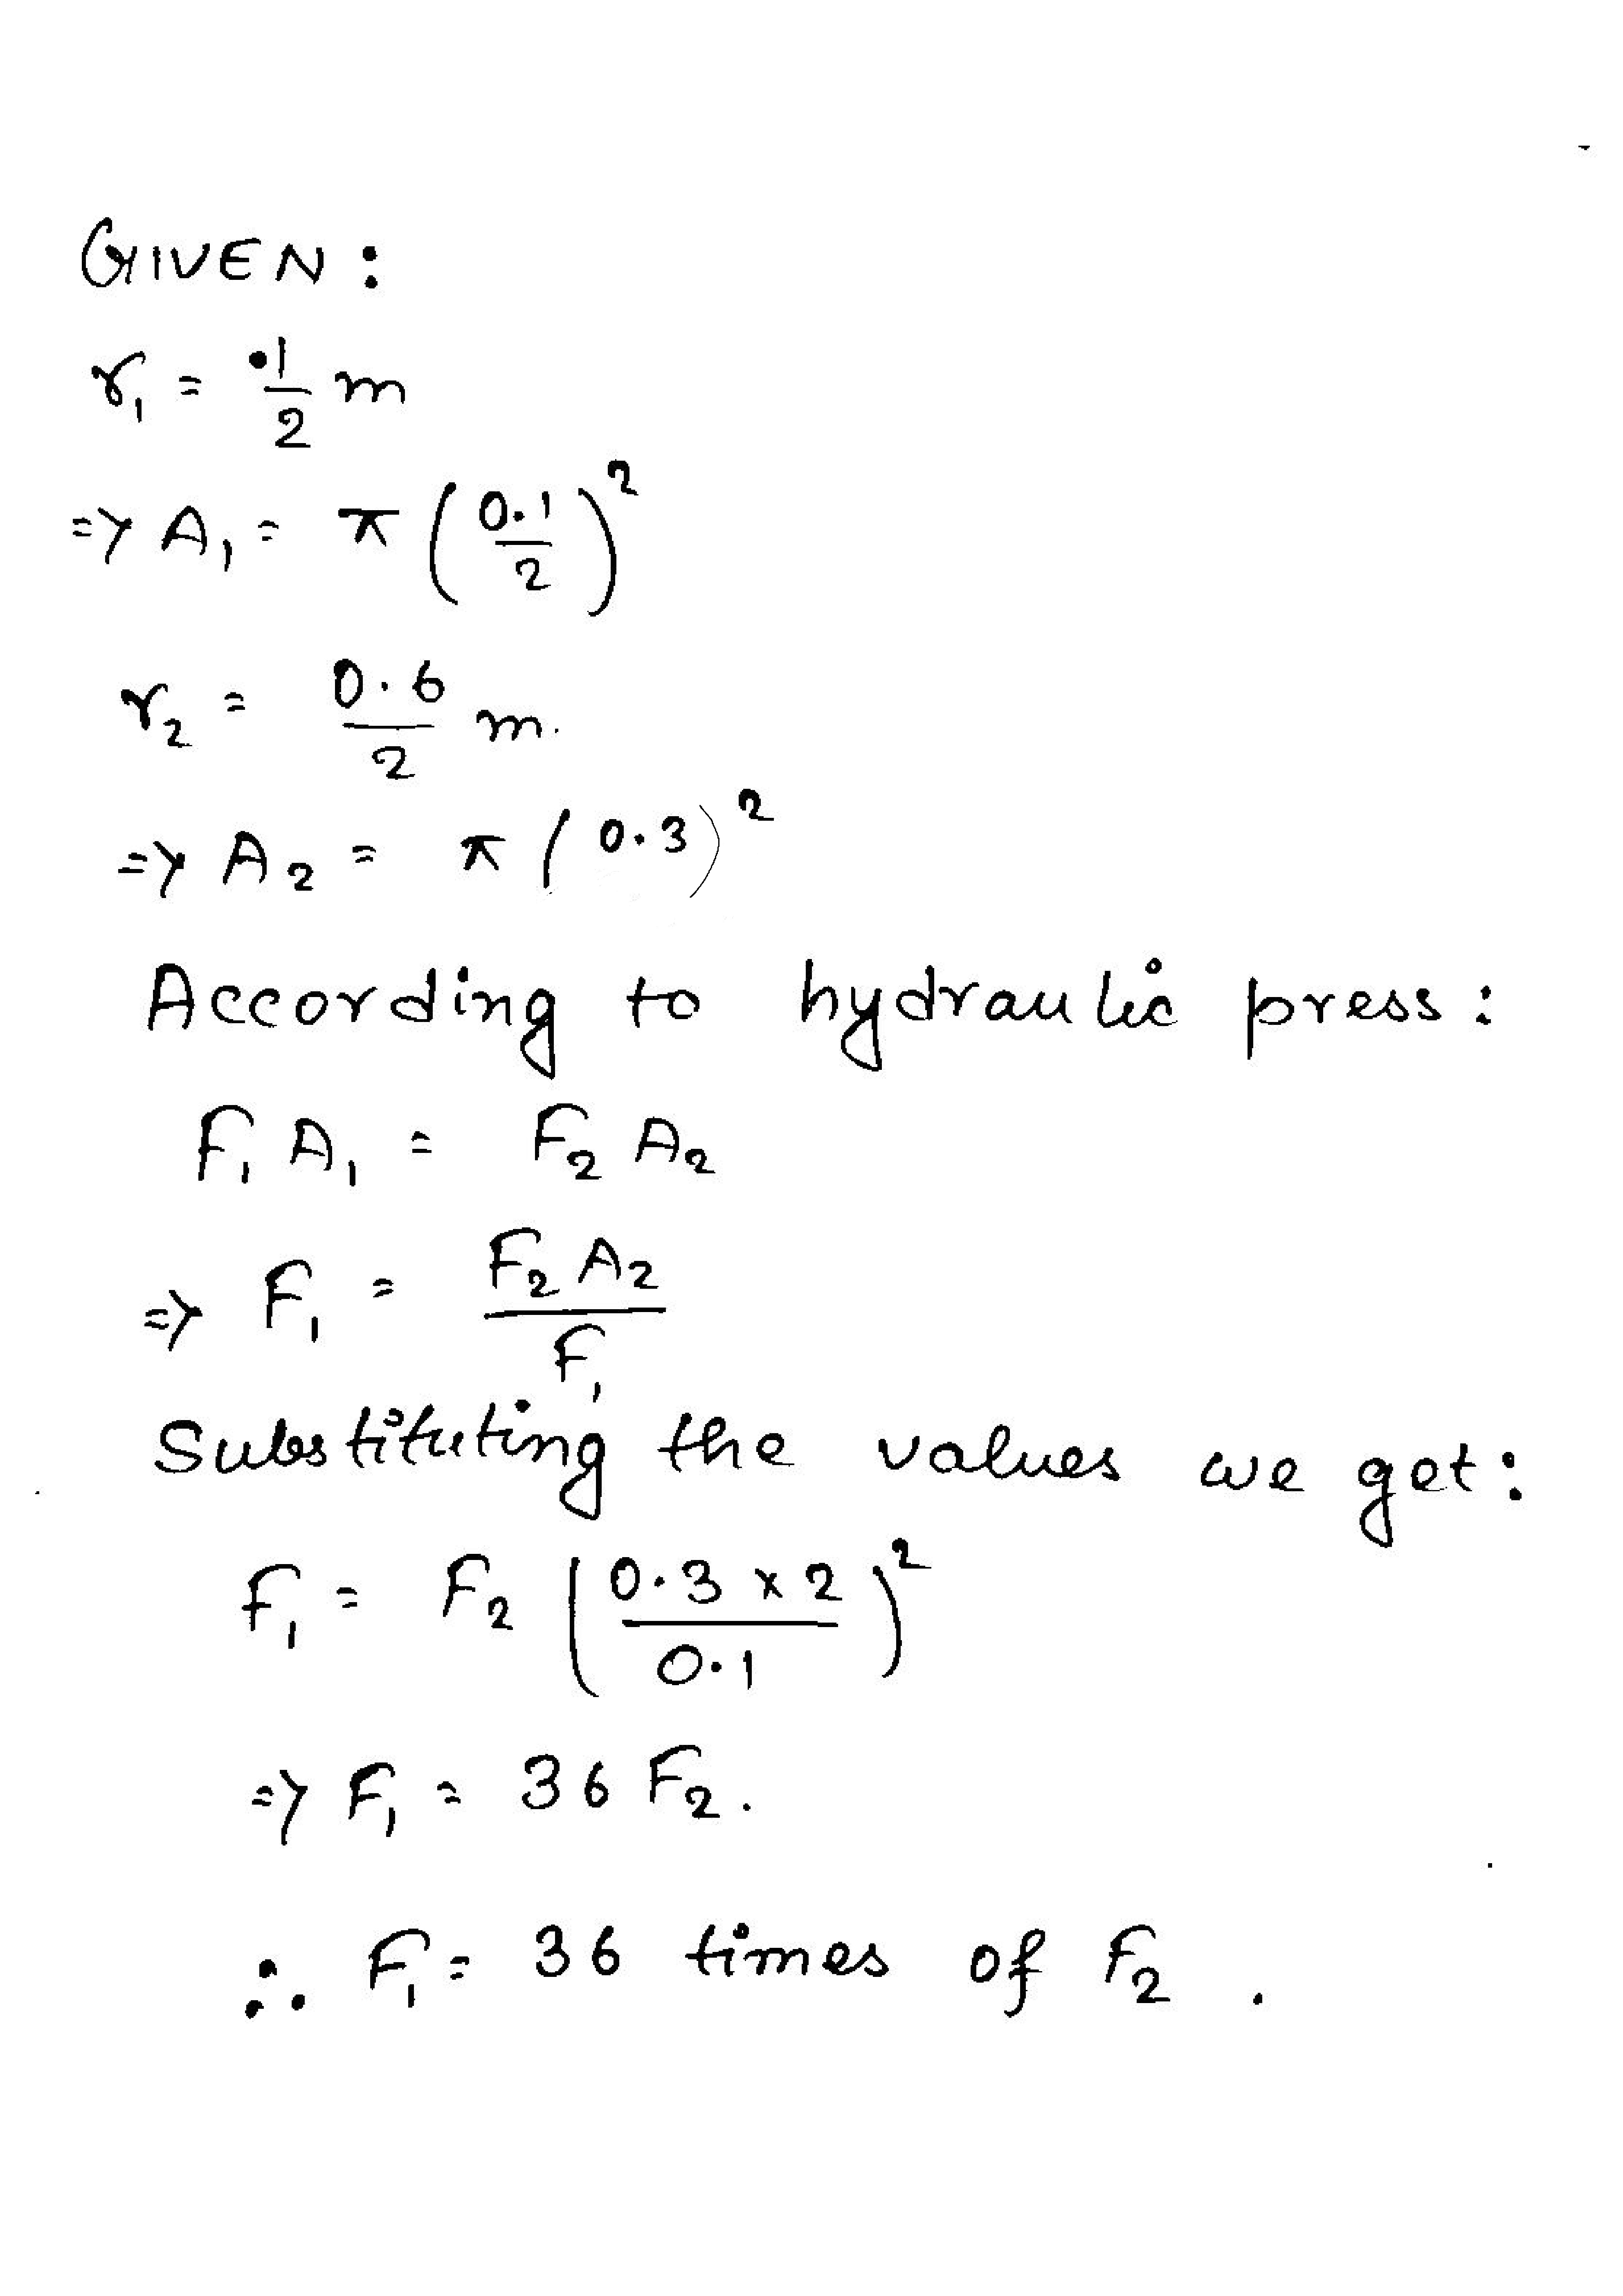 GIVEN :
r₁ = ·1/2 m
=> A₁ = π (0.1/2)²
r₂ = 0.6/2 m.
=> A₂ = π (0.3)²
According to hydraulic press :
F₁ A₁ = F₂ A₂
=> F₁ = F₂ A₂ / F₁
Substituting the values we get :
F₁ = F₂ (0.3 x 2 / 0.1)²
=> F₁ = 36 F₂ .
∴ F₁ = 36 times of F₂ .